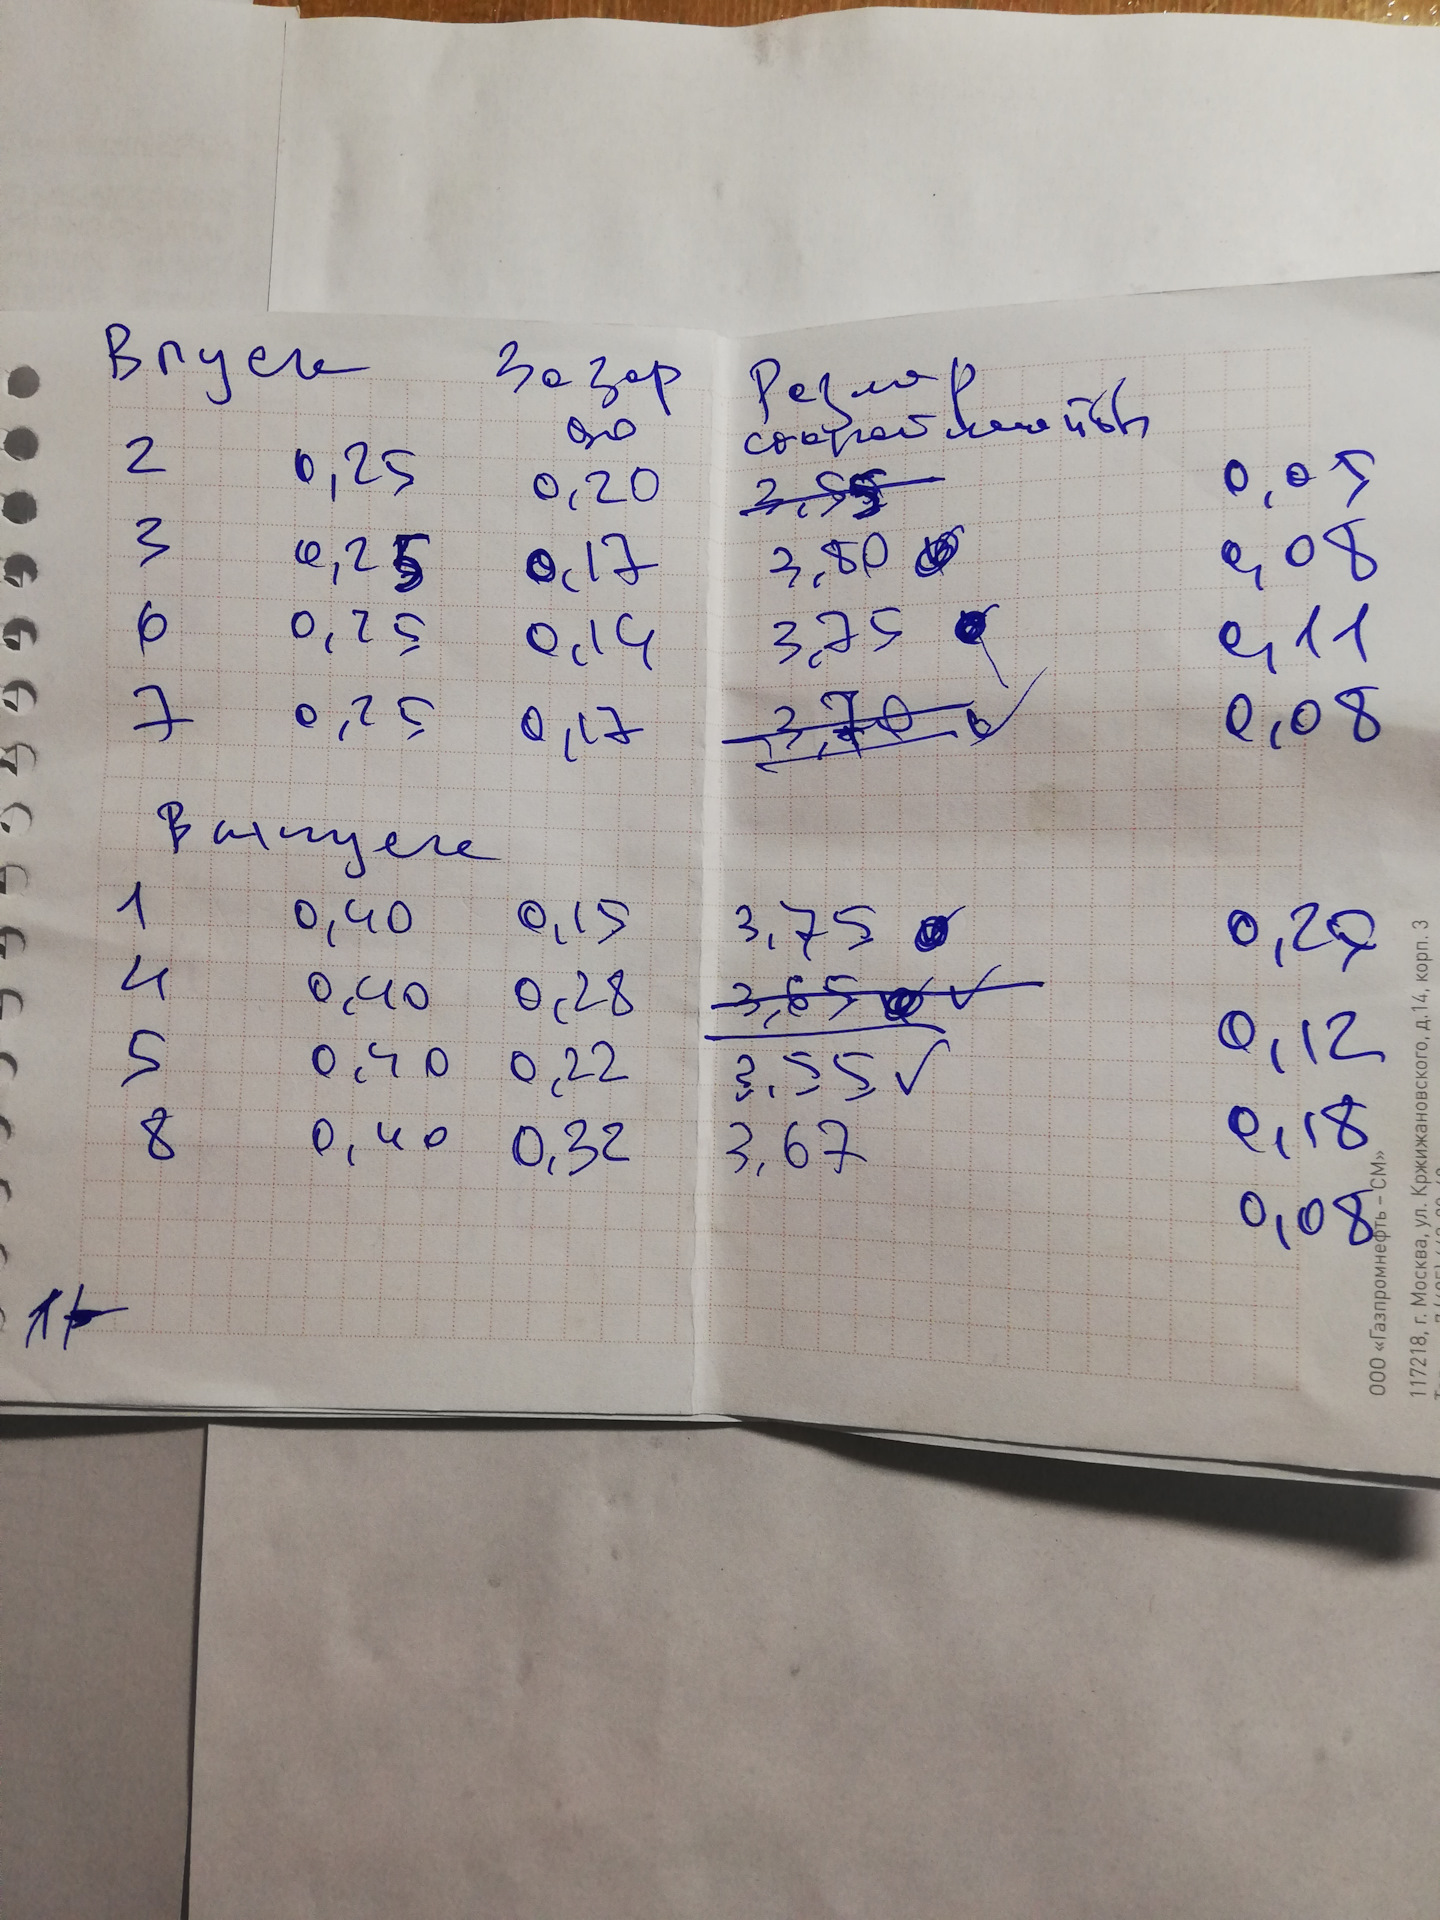 Впуск Зазор Размер
до
2 0,25 0,20 3,55 0,05
3 0,25 0,17 3,80 0,08
6 0,25 0,14 3,75 0,11
7 0,25 0,17 3,70 0,08
Выпуск
1 0,40 0,15 3,75
4 0,40 0,28 3,65 0,12
5 0,40 0,22 3,55 ✓ 0,18
8 0,40 0,32 3,67 0,08
ООО «Газпромнефть – СМ»
117218, г. Москва, ул. Кржижановского, д.14, корп. 3